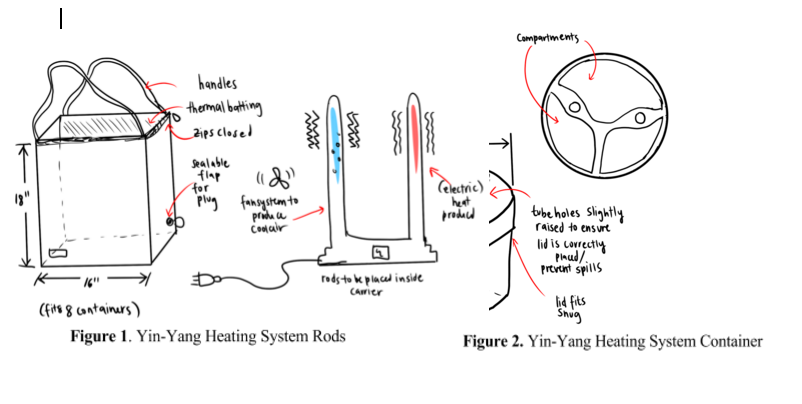 handles
thermal batting
zips closed
sealable
flap
for
plug
18"
16"
(fits 8 containers)
fan system to
produce
cool air
(electric)
heat
produced
rods to be placed inside
carrier
Figure 1. Yin-Yang Heating System Rods
Compartments
tube holes slightly
raised to ensure
lid is correctly
placed/
prevent spills
lid fits
snug
Figure 2. Yin-Yang Heating System Container